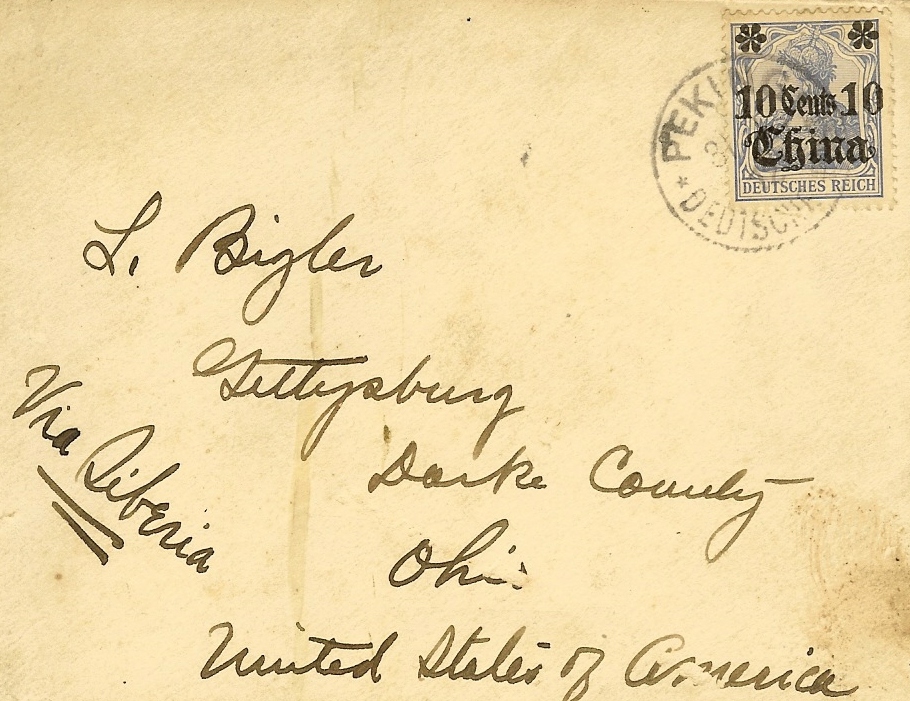 10 Cents 10
China
DEUTSCHES REICH
PEKI
DEUTSCHE
L. Bigler
Gettysburg
Darke County
Ohio
United States of America
Via Siberia